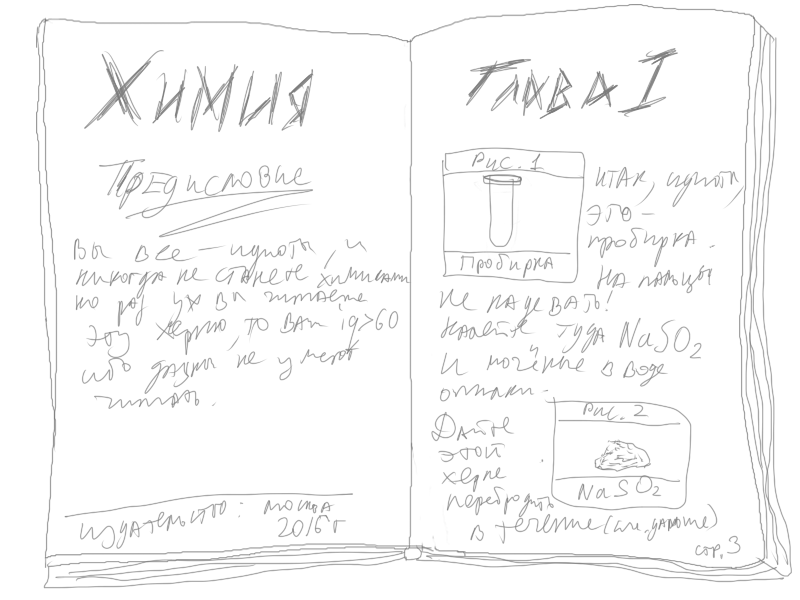 Химия
Предисловие
Вы все — идиоты, и
никогда не станете химиками
но раз уж вы читаете
эту херню, то ваш iq>60
ибо дауны не умеют
читать.
издательство: москва
2016 г
Глава I
Рис. 1
Пробирка
итак, идиоты,
это —
пробирка.
на пальцы
не надевать!
налейте туда NaSO2
и мочёные в воде
опилки.
Дайте
этой
херне
перебродить
в течение (см. дальше)
Рис. 2
NaSO2
стр. 3